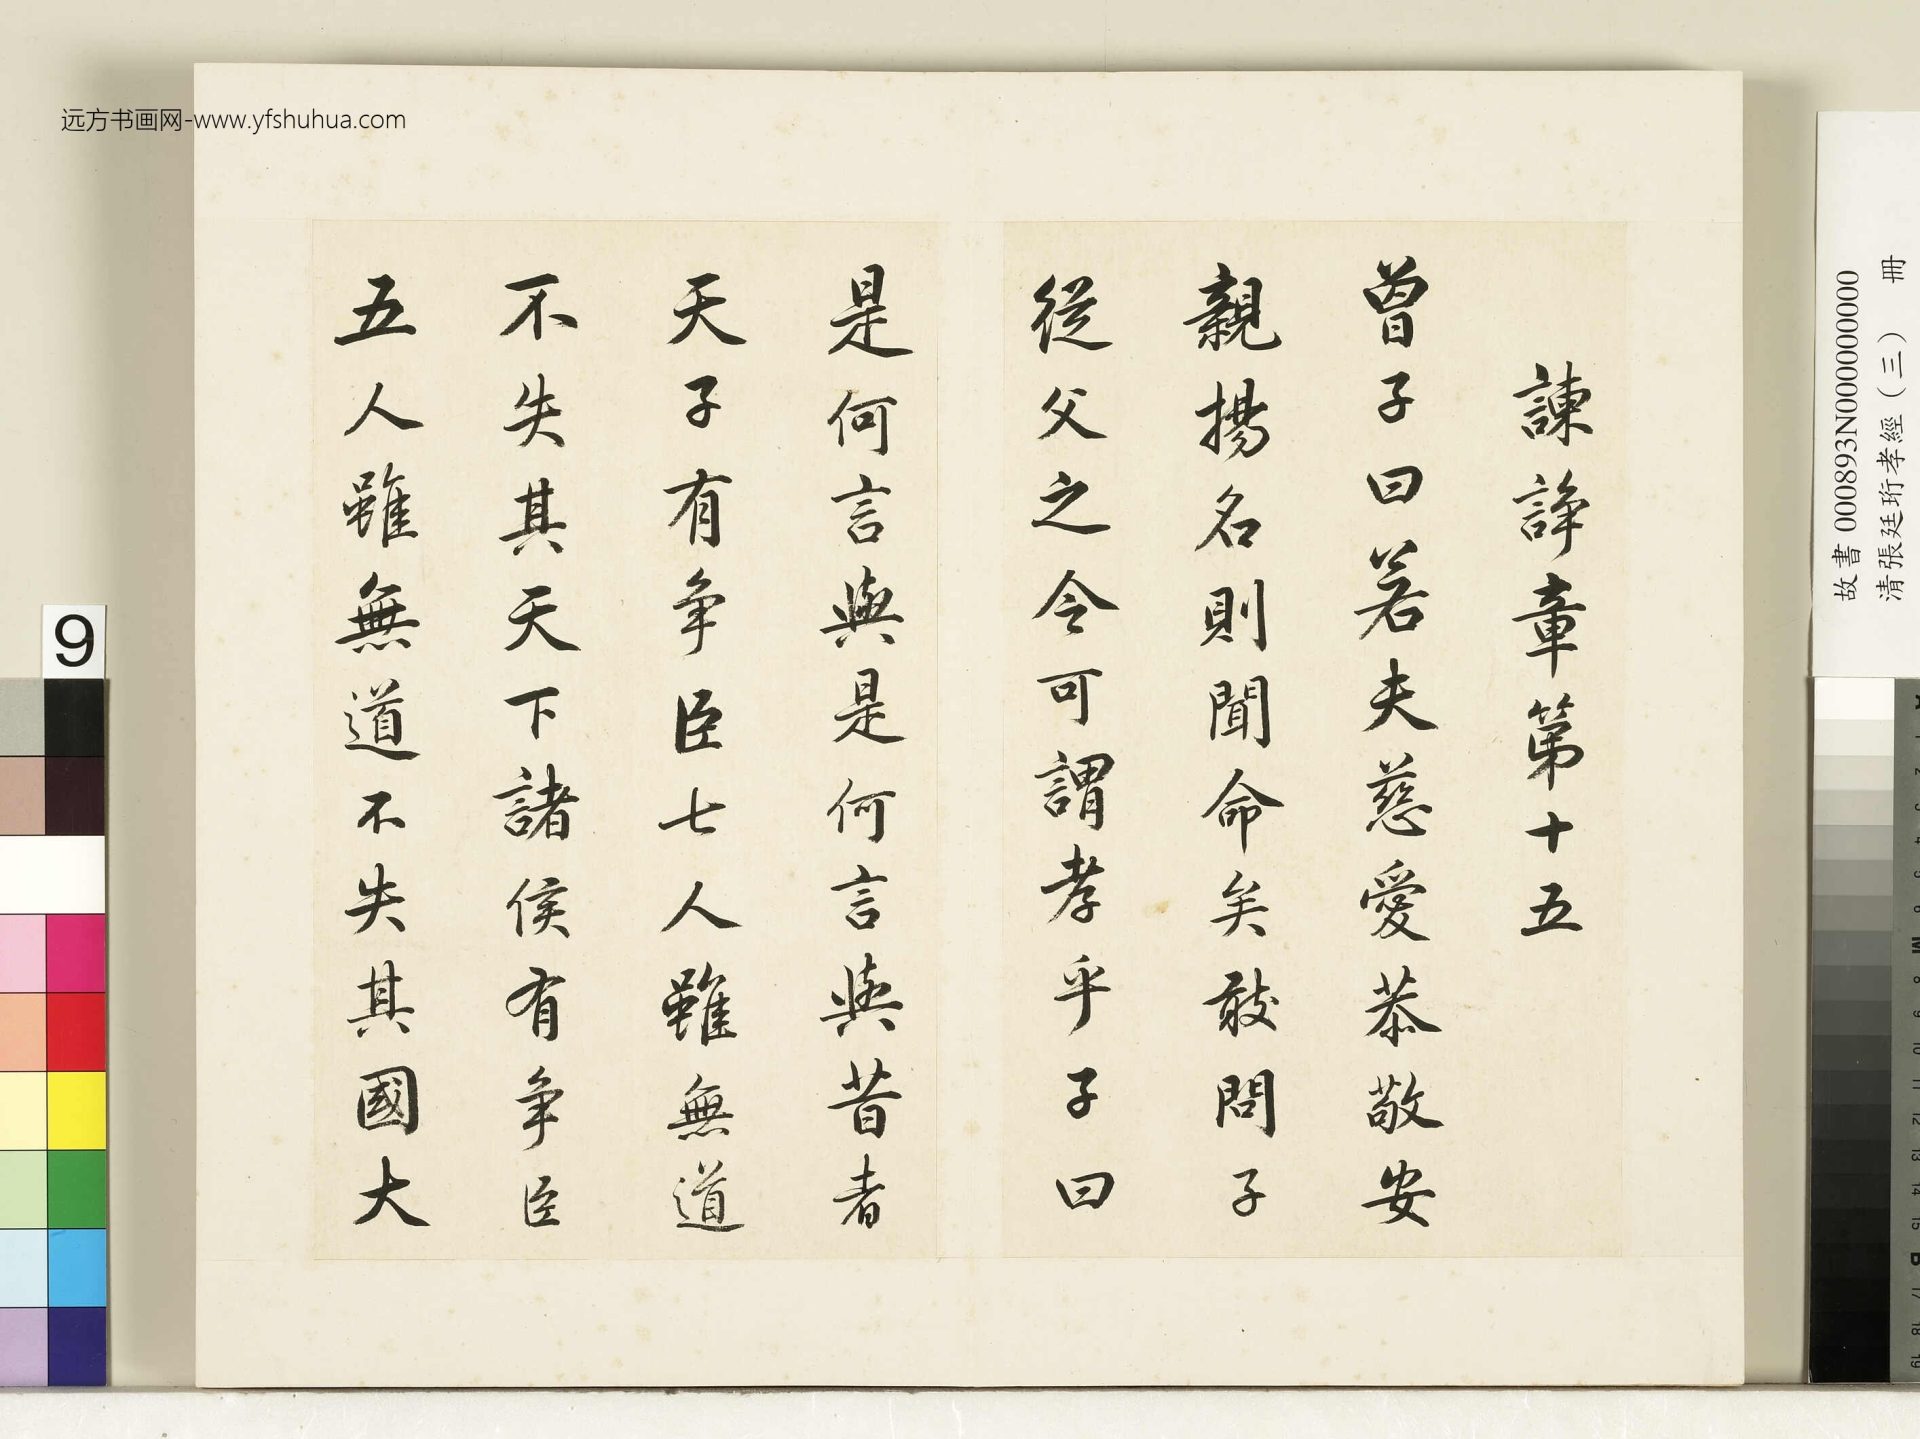 远方书画网-www.yfshuhua.com
諫諍章第十五
曾子曰若夫慈愛恭敬安
親揚名則聞命矣敢問子
從父之令可謂孝乎子曰
是何言與是何言與昔者
天子有争臣七人雖無道
不失其天下諸侯有争臣
五人雖無道不失其國大
故書 000893N000000000
清張廷珩孝經(三) 冊
9
A 1 2 3 4 5 6 M 8 9 10 11 12 13 14 15 B 17 18 19